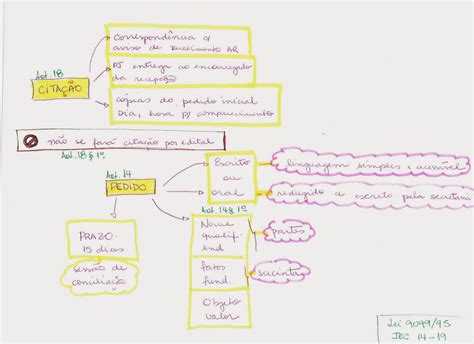 correspondência c/
aviso de recebimento AR
Art. 18
CITAÇÃO
PJ entrega ao encarregado
da recepção
cópias do pedido inicial
Dia, hora p/ comparecimento
não se fará citação por edital
Art. 18 § 1º
Art. 14
PEDIDO
Escrito
ou
oral
linguagem simples e acessível
reduzido a escrito pela secretaria
Art. 14 § 1º
PRAZO.
15 dias
sessão de
conciliação
Nome
qualif.
end
partes
fatos
fund.
sucinta
Objeto
valor
Lei 9099/95
JEC 14-19